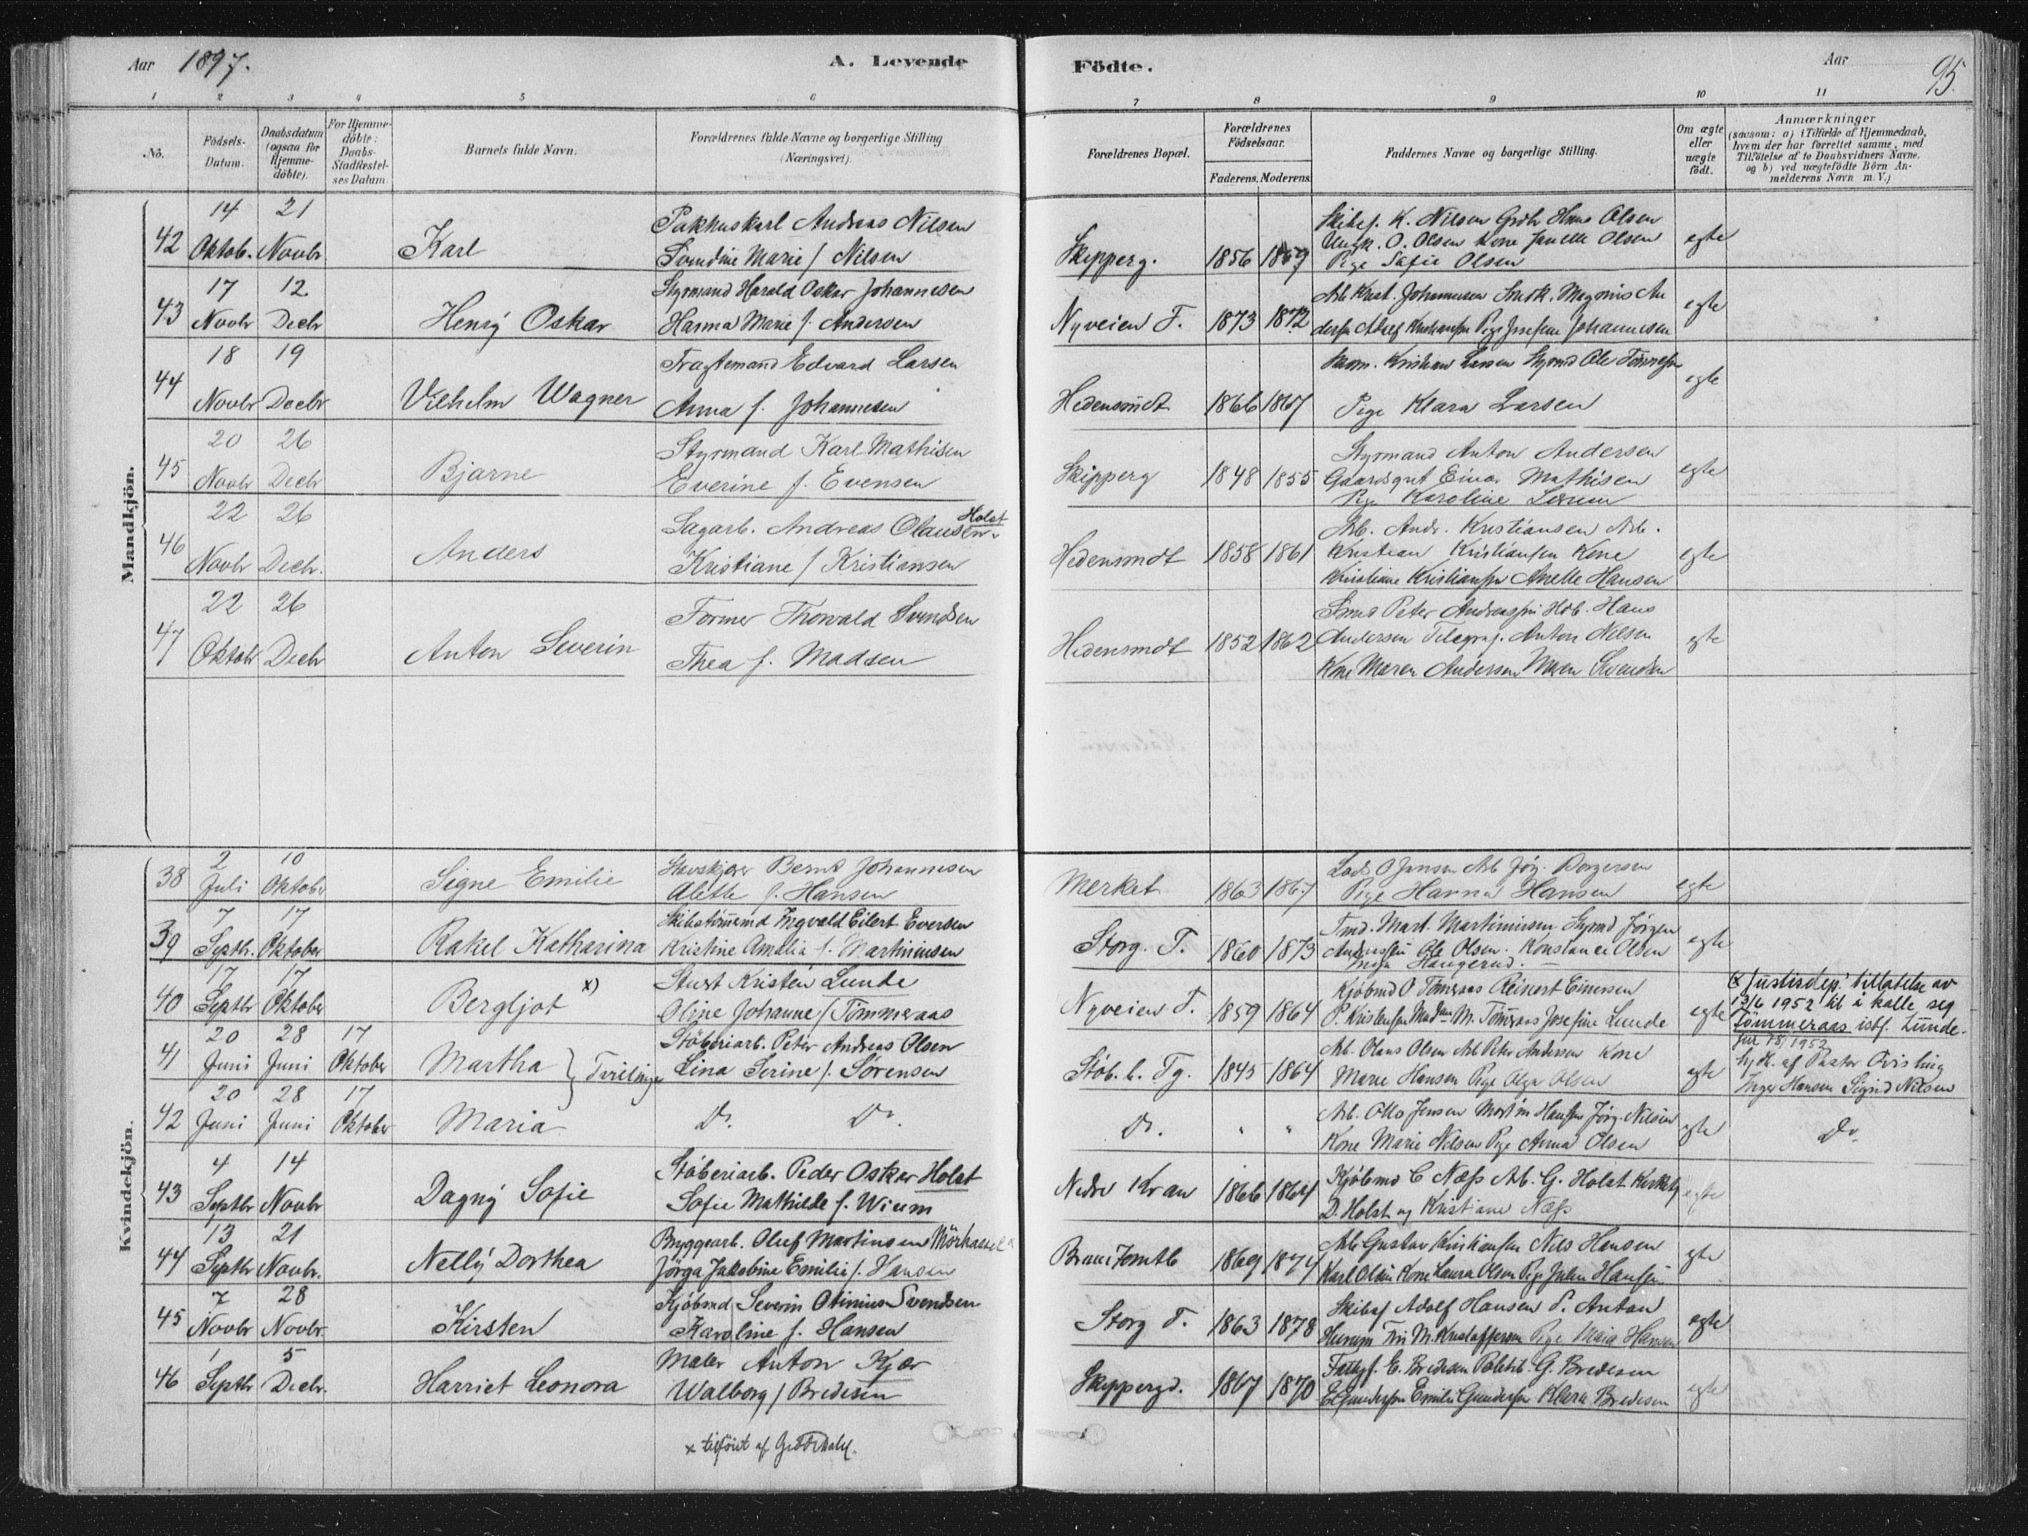 Aar 1897. A. Levende Födte. Aar 95.
1 2 3 4 5 6 7 8 9 10 11
No. Födsels-Datum. Daabsdatum (ogsaa for Hjemme-döbte). For Hjemme-döbte: Daabs-Stadfæstel-ses Datum. Barnets fulde Navn. Forældrenes fulde Navne og borgerlige Stilling (Næringsvei). Forældrenes Bopæl. Forældrenes Födselsaar. Faderens. Moderens. Faddernes Navne og borgerlige Stilling. Om ægte eller uægte födt. Anmærkninger (saasom: a) i Tilfælde af Hjemmedaab, hvem der har forrettet samme, med Tilföielse af to Daabsvidners Navne, og b) ved uægtefödte Börn Anmelderens Navn m. V.)
Mandkjön.
42 14 Oktob. 21 Novbr Karl Pakhuskarl Andreas Nilsen
Svendine Marie f. Nilsen Skipperg. 1856 1859 Skibsf. K. Nilsen Hans Olsen
O. Olsen Kone Janette Olsen
Pige Sofie Olsen egte
43 17 Novbr 12 Decbr Henrÿ Oskar Styrmand Harald Oskar Johannesen
Hanna Marie f. Andersen Nyveien T. 1873 1872 Arb Krist. Johannesen Smedk. Magnus An
dersen Adolf Kristiansen Pige Josefine Johannesen egte
44 18 Novbr 19 Decbr Vilhelm Wagner Fragtemand Edvard Larsen
Anna f. Johannesen Hedensmdt 1866 1867 Kristian Larsen Styrmd Ole Tønnesen
Pige Klara Larsen egte
45 20 Novbr 26 Decbr Bjarne Styrmand Karl Mathisen
Everine f. Evensen Skipperg 1848 1855 Styrmand Anton Andersen
Gaardsgut Einar Mathisen
Pige Karoline egte
46 22 Novbr 26 Decbr. Anders Sagarb. Andreas Olausen Holst
Kristiane f Kristiansen Hedensmdt 1858 1861 Arb. Andr. Kristiansen Arb.
Kristian Kristiansen Kone
Kristiane Kristiansen Anette Hansen egte
47 22 Oktobr 26 Decbr Anton Severin Former Thorvald Svendsen
Thea f. Madsen Hedensmdt 1852 1862 Peter Andreassen Arb. Hans
Andersen Telegraf. Anton Nilsen
Kone Maren Andersen Maren Svendsen egte
Kvindekjön.
38 2 Juli 10 Oktober Signe Emilie Bernt Johannesen
Alette f. Hansen Merket 1863 1867 Lods O Jensen Arb Jørg. Dorgersen
Pige Hanna Hansen egte
39 7 Septbr. 17 Oktober Rakel Katharina Skibstømmermd Ingvald Eilert Eversen
Kristine Amalia f. Martinisen Storg. T. 1860 1873 Tmd. Mart. Martinisen Styrmd Jørgen
Andreassen Ole Olsen. Konstance Olsen
Haugerud. egte
40 17 Septbr 17 Oktober Bergljot x) Stuert Kristen Lunde
Oline Johanne f Tömmeraas Nyveien T. 1859 1864 Kjøbmd O Tömeraas Reinert Einersen
P. Kristensen Madam M. Tömmeraas Josefine Lunde egte x) Justisdep. tillatelse av
13/6 1952 til å kalle seg
Tömmeraas istf. Lunde.
1952
41 20 Juni 28 Juni 17 Oktober Martha } Tvillinger Støberiarb. Peter Andreas Olsen
Lina Serine f. Sørensen Støb. b. Tg. 1845 1864 Arb. Olaus Olsen Arb Peter Andersen Kone
Marie Hansen Pige Olga Olsen egte Hj. d. af Pastor Qvisling
Inger Hansen Sigrid Nilsen
42 20 Juni 28 Juni 17 Oktober Maria Do. Do. Do. " " Arb. Otto Jensen Martin Hansen Jörg. Nilsen
Kone Marie Nilsen Pige Anna Olsen egte Do.
43 4 Septbr 14 Novbr Dagnÿ Sofie Støberiarb. Peder Oskar Holst
Sofie Mathilde f. Wium Nedre Kran 1866 1864 Kjöbmd C Næss Arb. G. Holst
D. Holst og Kristiane Næss egte
44 13 Septbr 21 Novbr. Nellÿ Dorthea Bryggearb. Oluf Martinsen Mörhassel
Jørga Jakobine Emilie f. Hansen Brani Tomtb 1869 1874 Arb Gustav Kristiansen Nils Hansen
Karl Olsen Kone Laura Olsen Pige Julie Hansen egte
45 7 Novbr 28 Novbr. Kirsten Kjöbmd Severin Otinius Svendsen
Karoline f. Hansen Storg T. 1863 1878 Skibsf Adolf Hansen S. Anton
Hurum Frk M. Kristoffersen Pige Maria Hansen egte
46 1 Septbr 5 Decbr. Harriet Leonora Maler Anton Kjær
Walborg f Bredesen Skippergd. 1867 1870 E. Bredesen G. Bredesen
E Gundersen Emilie Gundersen Klara Bredesen egte
x tilföiet af